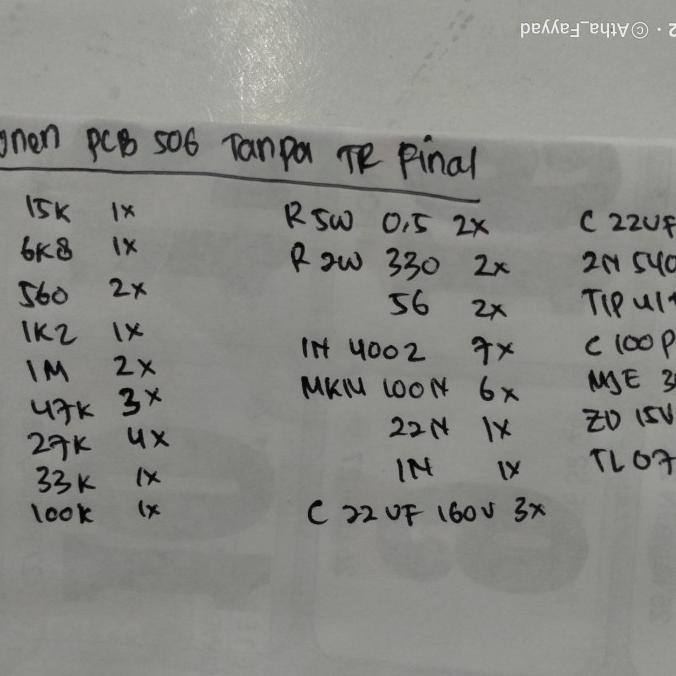 © Atha_Fayyad
onen PCB 506 Tanpa TR Final
15K 1x
6K8 1x
560 2x
1K2 1x
1M 2x
47K 3x
27K 4x
33K 1x
100K 1x
R 5W 0,5 2x
R 2W 330 2x
56 2x
1N 4002 7x
MKM 100N 6x
22N 1x
1N 1x
C 22UF 160V 3x
C 22UF
2N 540
TIP 41
C 100P
MJE 3
ZD 15V
TL 07